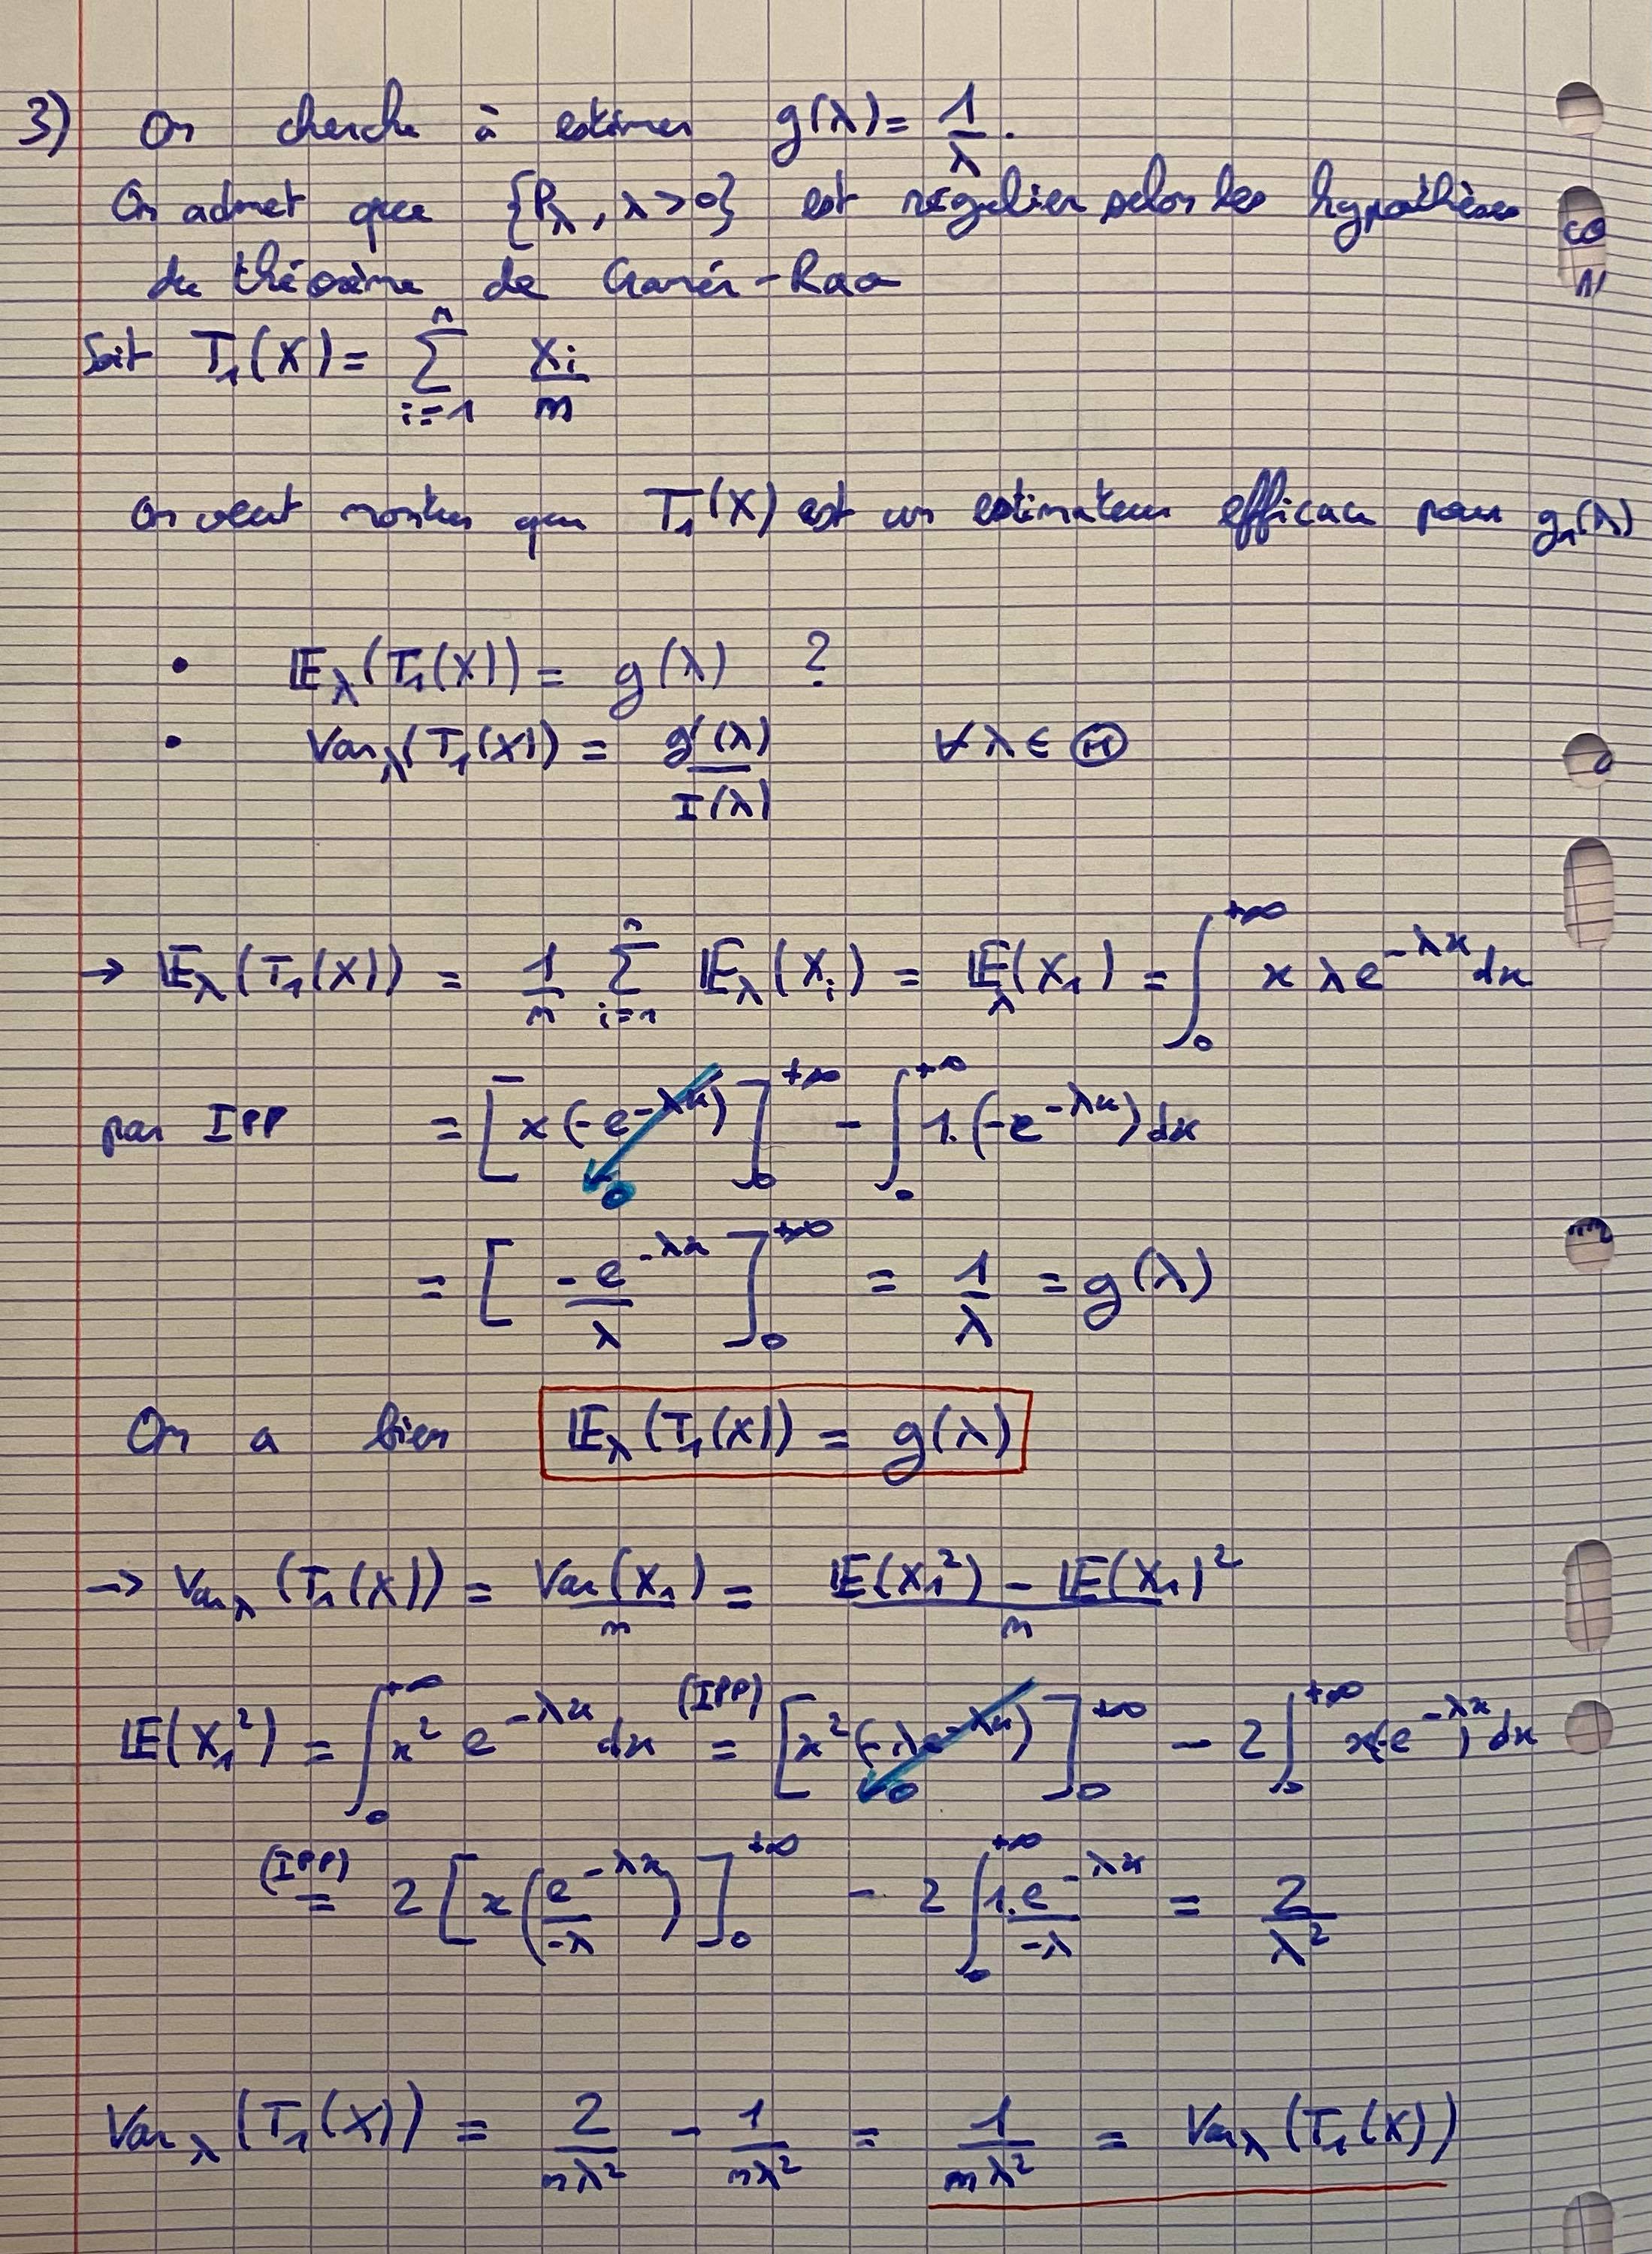 3) On cherche à estimer g(λ) = 1/λ.
On admet que {P_λ, λ > 0} est régulier selon les hypothèses
du théorème de Cramér-Rao
Soit T₁(X) = Σ_{i=1}^{n} X_i/n
On veut montrer que T₁(X) est un estimateur efficace pour g₁(λ)
• E_λ(T₁(X)) = g(λ) ?
• Var_λ(T₁(X)) = g'(λ)/I(λ) ∀λ ∈ Θ
→ E_λ(T₁(X)) = 1/n Σ_{i=1}^{n} E_λ(X_i) = E_λ(X₁) = ∫_0^{+∞} x λ e^{-λx} dx
par IPP = [x(-e^{-λx})]_0^{+∞} - ∫_0^{+∞} 1.(-e^{-λx}) dx
0
= [-e^{-λx}/λ]_0^{+∞} = 1/λ = g(λ)
On a bien E_λ(T₁(X)) = g(λ)
→ Var_λ(T₁(X)) = Var(X₁)/n = (E(X₁²) - E(X₁)²)/n
E(X₁²) = ∫_0^{+∞} x² e^{-λx} dx (IPP) = [x²(-λe^{-λx})]_0^{+∞} - 2∫_0^{+∞} x(-e^{-λx}) dx
0
(IPP) = 2[x(e^{-λx}/-λ)]_0^{+∞} - 2∫_0^{+∞} 1.e^{-λx}/-λ = 2/λ²
Var_λ(T₁(X)) = 2/nλ² - 1/nλ² = 1/nλ² = Var_λ(T₁(X))